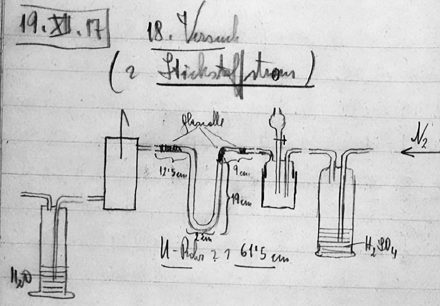 19. XII. 17
18. Versuch
(2 Stickstoffstrom)
N2
12·5 cm
9 cm
19 cm
2 cm
U-Rohr 2 ? 61·5 cm
H2O
H2SO4